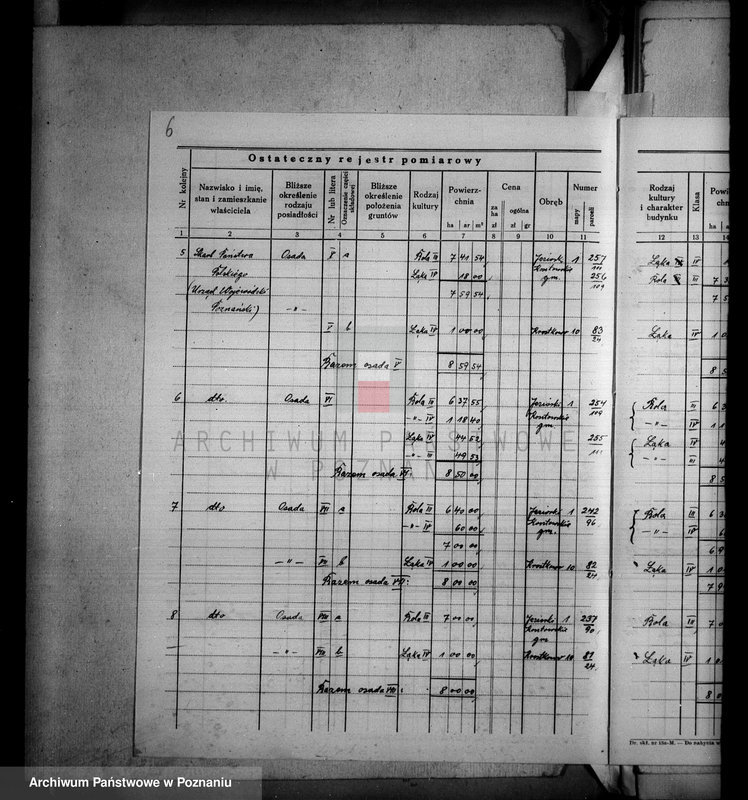 6
Ostateczny rejestr pomiarowy
Nr kolejny
Nazwisko i imię, stan i zamieszkanie właściciela
Bliższe określenie rodzaju posiadłości
Nr lub litera
Oznaczenie części składowej
Bliższe określenie położenia gruntów
Rodzaj kultury
Powierzchnia
ha ar m²
Cena
za ha zł
ogólna zł gr
Obręb
Numer
mapy parceli
Rodzaj kultury i charakter budynku
Klasa
ha
1 2 3 4 5 6 7 8 9 10 11 12 13 14
5 Skarb Państwa Osada V a Rola III 7 41 54 1 257/111 Łąka IV
Polskiego Łąka IV 18 00 gm. 256/109 Rola
(Urząd Wojewódzki 7 59 54
Poznański) -"-
V b Łąka IV 1 00 00 10 83/24 Łąka IV
Razem osada V 8 59 54
6 dto. Osada VI Rola III 6 37 55 1 254/109 Rola III
-"- IV 1 18 40 gm. -"- IV
Łąka IV 44 52 255/111 Łąka IV
-"- III 49 53 -"- III
Razem osada VI: 8 50 00
7 dto Osada VII a Rola III 6 40 00 1 242/96 Rola III
-"- IV 60 00 gm. -"- IV
7 00 00
-"- VII b Łąka IV 1 00 00 10 82/24 Łąka IV
Razem osada VII: 8 00 00
8 dto Osada VIII a Rola III 7 00 00 1 237/90 Rola III
gm.
-"- VIII b Łąka IV 1 00 00 10 81/24 Łąka IV
Razem osada VIII: 8 00 00
Dr. skł. nr 15a-M. — Do nabycia w
ARCHIWUM PAŃSTWOWE
W POZNANIU
Archiwum Państwowe w Poznaniu